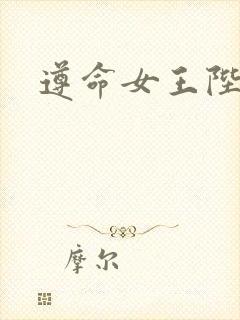 遵命女王陛
摩尔